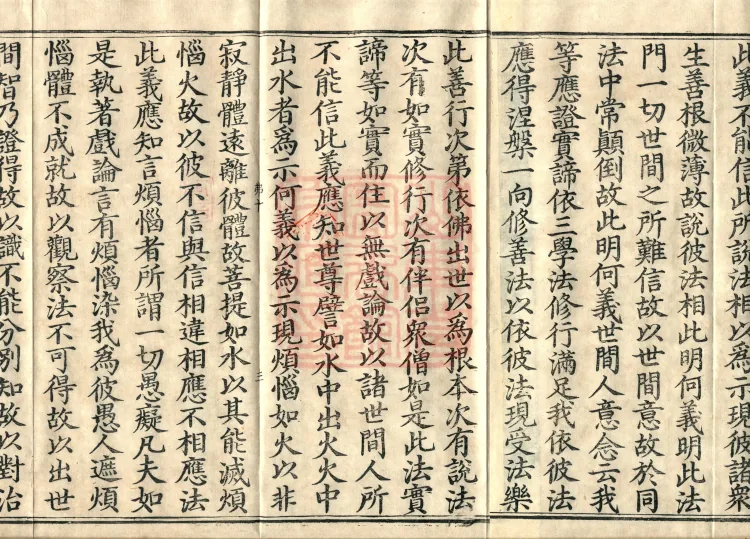 此義不能信此所說法相以為示現彼諸衆
生善根微薄故說彼法相此明何義明此法
門一切世間之所難信故以世間意故於同
法中常顛倒故此明何義世間人意念云我
等應證實諦依三學法修行滿足我依彼法
應得涅槃一向修善法以依彼法現受法樂
此善行次第依佛出世以為根本次有說法
次有如實修行次有伴侶衆僧如是此法實
諦等如實而住以無戲論故以諸世間人所
不能信此義應知世尊譬如水中出火火中
出水者為示何義以為示現煩惱如火以非
弟十
三
寂靜體遠離彼體故菩提如水以其能滅煩
惱火故以彼不信與信相違相應不相應法
此義應知言煩惱者所謂一切愚癡凡夫如
是執著戲論言有煩惱染我為彼愚人遮煩
惱體不成就故以觀察法不可得故以出世
間智乃證得故以識不能分別知故以對治